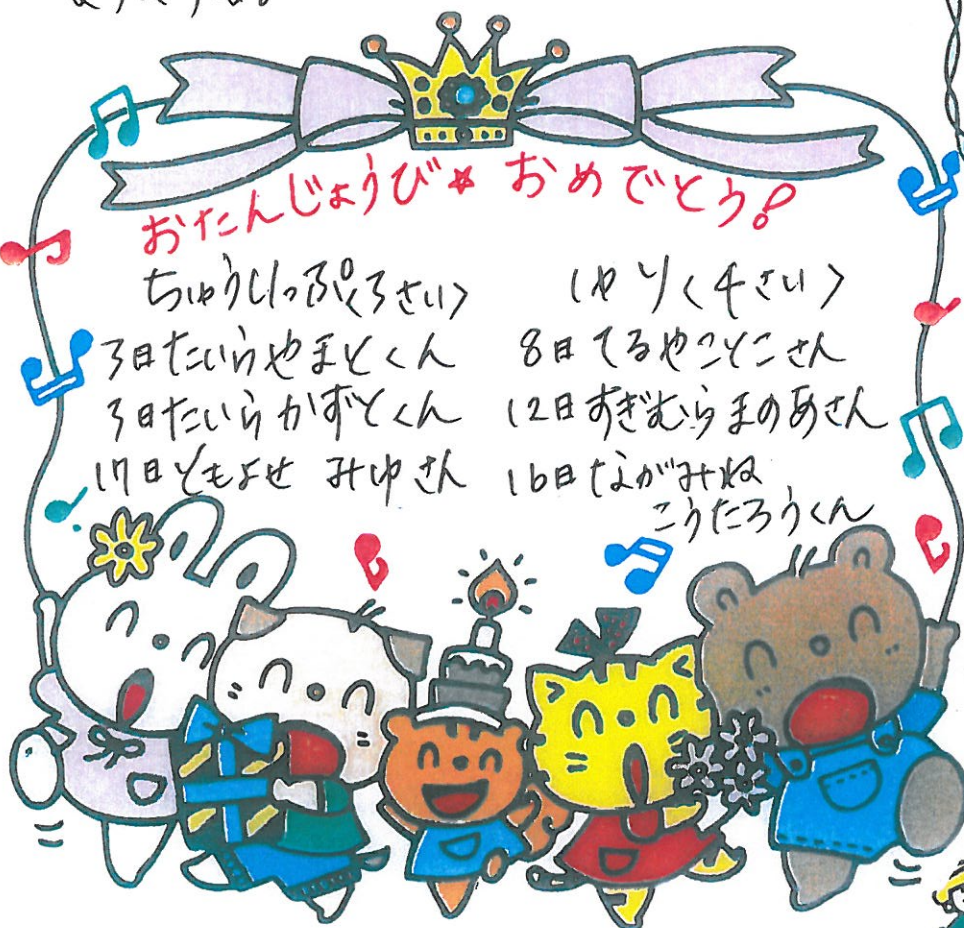 おたんじょうび☆おめでとう!
ちゅうりっぷ〈3さい〉
3日たいらやまとくん
3日たいらかずとくん
17日ともよせ みゆさん
〈ゆり〈4さい〉
8日てるやことこさん
12日すぎむらまのあさん
16日ながみね
こうたろうくん